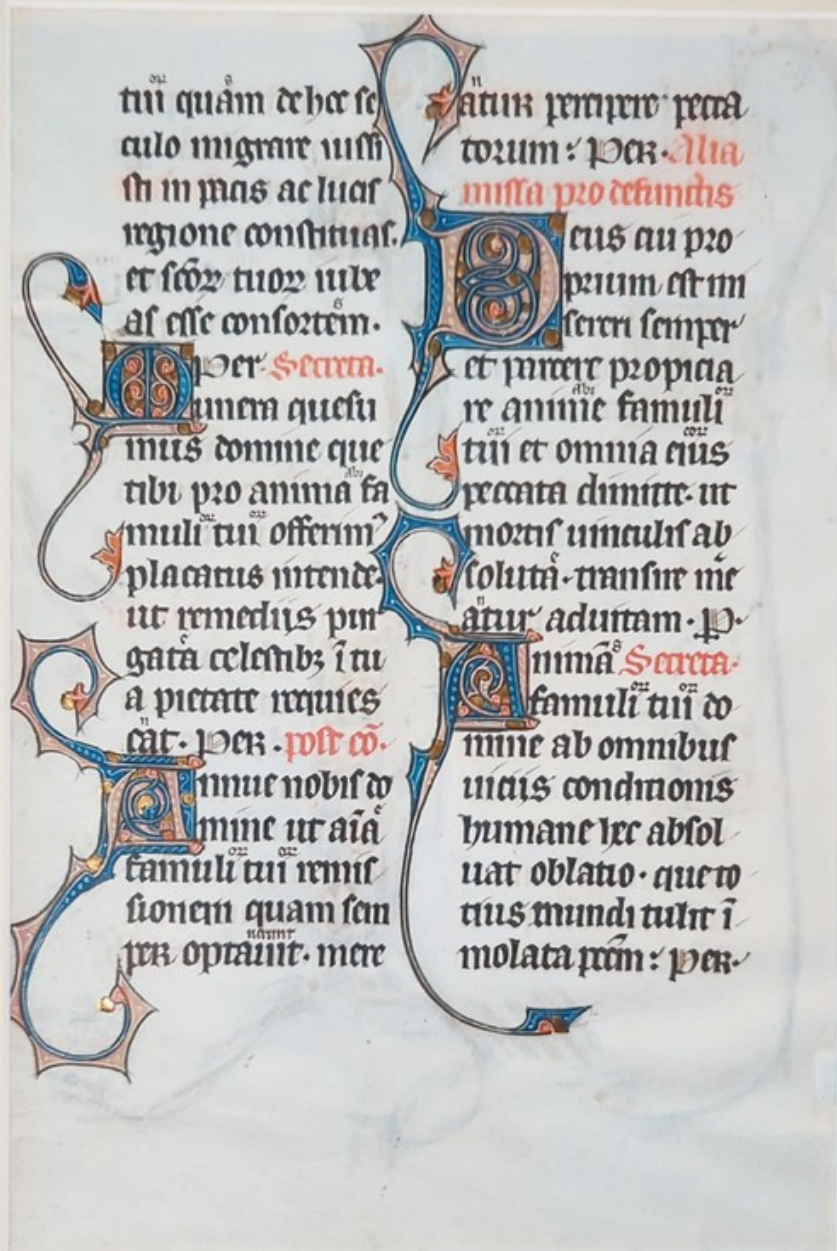 tui quam de hoc se
culo migrare iussi
sti in pacis ac lucis
regione constituas.
et scōꝝ tuoꝝ iube
as esse consortem.
Per. Secreta.
Munera quesu
mus domine que
tibi pro anima fa
muli tui offerimꝰ
placatus intende.
ut remediis pur
gata celestibꝫ ī tu
a pietate requies
cat. Per. post cō.
Annue nobis do
mine ut aīa
famuli tui remis
sionem quam sem
per optauit. mere
atur percipere pecca
torum: Per. Alia
missa pro defunctis
Deus cui pro
prium est mi
sereri semper
et parcere propicia
re anime famuli
tui et omnia eius
peccata dimitte. ut
mortis uinculis ab
soluta. transire me
atur ad uitam. P.
Animā Secreta.
famuli tui do
mine ab omnibus
uiciis conditionis
humane hec absol
uat oblatio. que to
tius mundi tulit ī
molata pctm̄: Per.